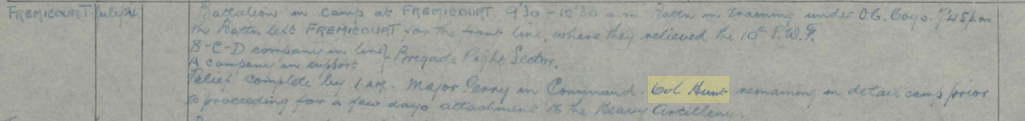 FREMICOURT July 24 Battalion in camp at FREMICOURT 9'30 - 12'30 a.m. Battn in training under O.C. Coys. 7'45 p.m
the Battn left FREMICOURT for the front line, where they relieved the 10th R.W.F.
B-C-D companies in line } Brigade Right Sector.
A company in support
Relief complete by 1 AM. Major Perry in Command. Col Hunt remaining in detail camp prior
to proceeding for a few days attachment to the Heavy Artillery.